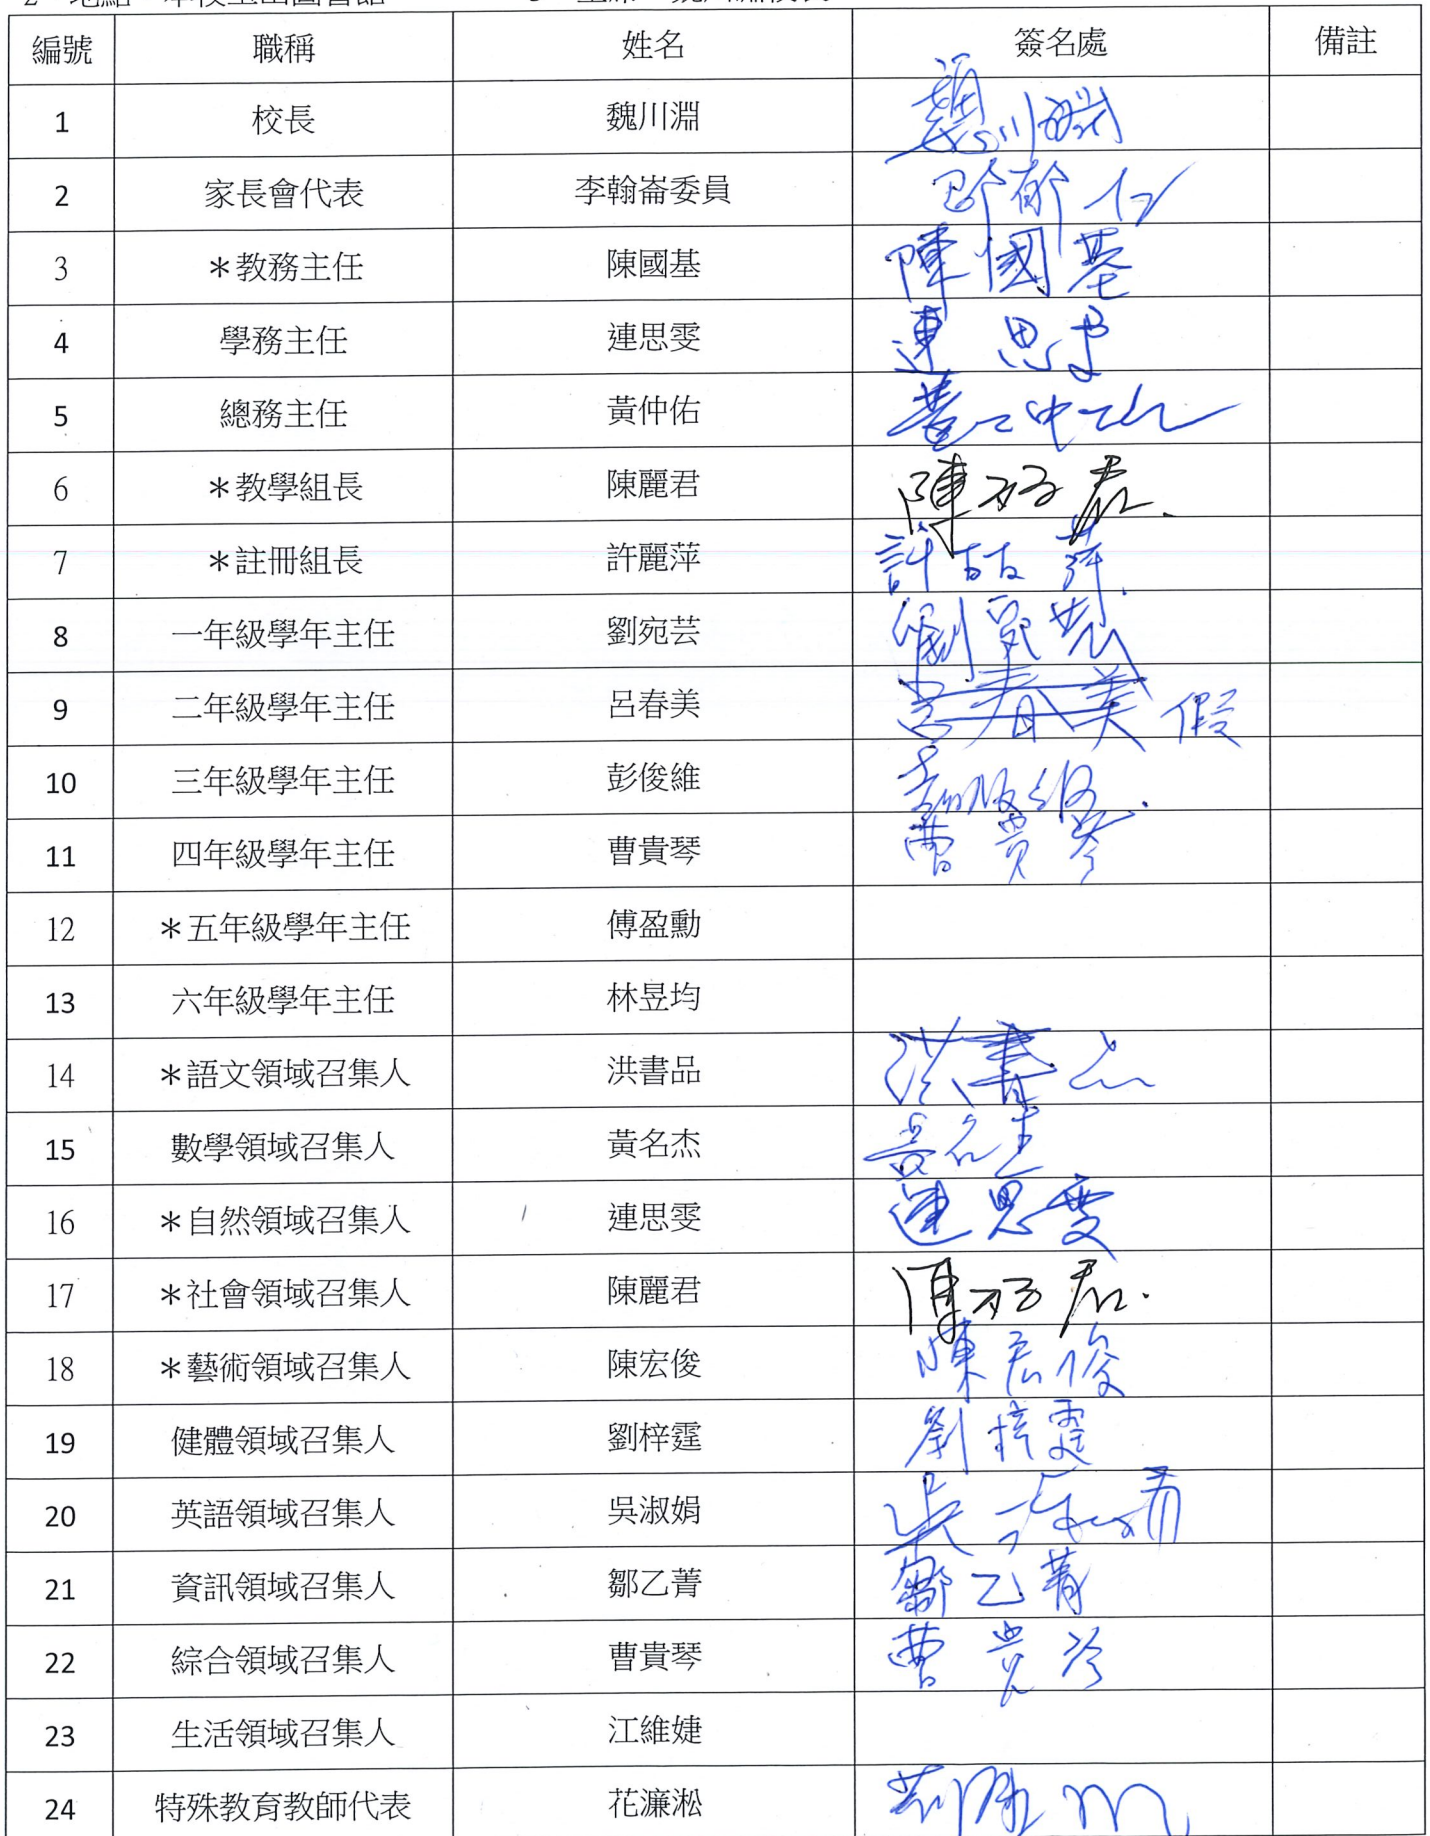 編號 職稱 姓名 簽名處 備註
1 校長 魏川淵 魏川淵
2 家長會代表 李翰崙委員
3 *教務主任 陳國基 陳國基
4 學務主任 連思雯 連思雯
5 總務主任 黃仲佑
6 *教學組長 陳麗君 陳麗君
7 *註冊組長 許麗萍 許麗萍
8 一年級學年主任 劉宛芸 劉宛芸
9 二年級學年主任 呂春美 呂春美 假
10 三年級學年主任 彭俊維 彭俊維
11 四年級學年主任 曹貴琴 曹貴琴
12 *五年級學年主任 傅盈勳
13 六年級學年主任 林昱均
14 *語文領域召集人 洪書品 洪書品
15 數學領域召集人 黃名杰 黃名杰
16 *自然領域召集人 連思雯 連思雯
17 *社會領域召集人 陳麗君 陳麗君
18 *藝術領域召集人 陳宏俊 陳宏俊
19 健體領域召集人 劉梓霆 劉梓霆
20 英語領域召集人 吳淑娟 吳淑娟
21 資訊領域召集人 鄒乙菁 鄒乙菁
22 綜合領域召集人 曹貴琴 曹貴琴
23 生活領域召集人 江維婕
24 特殊教育教師代表 花濂淞